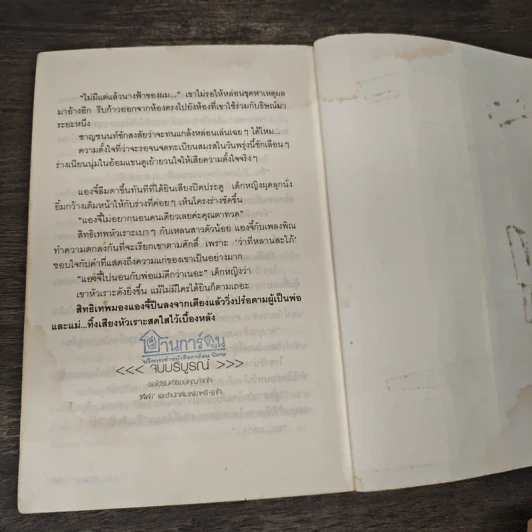 "ไม่มีแต่แล้วนางฟ้าของผม..." เขาไม่รอให้หล่อนขุดหาเหตุผล
มาอ้างอีก รีบก้าวออกจากห้องตรงไปยังห้องที่เขาใช้ร่วมกับธิษณ์มา
ระยะหนึ่ง
ชาญชนนท์ชักสงสัยว่าจะทนแกล้งหล่อนเล่นเฉยๆ ได้ไหม...
ความตั้งใจที่ว่าจะรอจนจดทะเบียนสมรสในวันพรุ่งนี้ชักเลือนๆ
ร่างเนียนนุ่มในอ้อมแขนดูเย้ายวนใจให้เสียความตั้งใจจริงๆ
แองจี้ลืมตาขึ้นทันทีที่ได้ยินเสียงปิดประตู เด็กหญิงผุดลุกนั่ง
ยิ้มกว้างเต็มหน้าให้กับร่างที่ค่อยๆ เห็นโครงร่างชัดขึ้น
"แองจี้ไม่อยากนอนคนเดียวเลยค่ะคุณตาทวด"
สิทธิเทพหัวเราะเบาๆ กับเหลนสาวตัวน้อย แองจี้กับเพลงพิณ
ทำความตกลงกันที่จะเรียกเขาตามศักดิ์ เพราะ 'ว่าที่หลานสะใภ้'
ขอบใจกับคำที่แสดงถึงความแก่ของเขาเป็นอย่างมาก
"แองจี้ไปนอนกับพ่อแม่ดีกว่าเนอะ" เด็กหญิงว่า
เขาหัวเราะดังยิ่งขึ้น แม้ไม่มีใครได้ยินก็ตามเถอะ
สิทธิเทพมองแองจี้ปีนลงจากเตียงแล้ววิ่งปร๋อตามผู้เป็นพ่อ
และแม่...ทิ้งเสียงหัวเราะสดใสไว้เบื้องหลัง
บ้านการ์ตูน
<<< จบบริบูรณ์ >>>